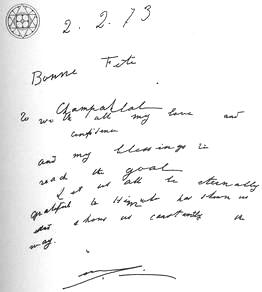 2.2.73
Bonne Fête
To Champaklal
with all my love and
confidence
and my blessings to
reach the goal
Let us all be eternally
grateful to Him who has shown us
and shows us constantly the
way.